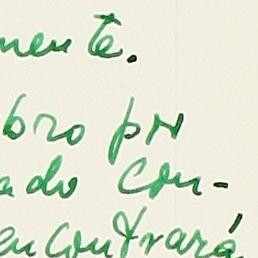 mente.
bro por
ado con-
encontrará